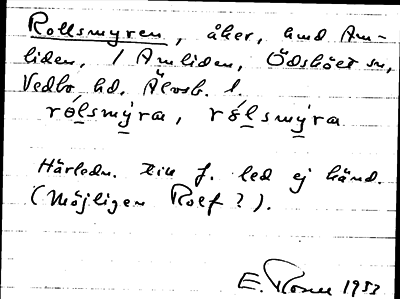 Rollsmyren, åker, hmd Am-
liden, / Amliden, Ödsköet sn,
Vedbo hd, Älvsb. l.
rólsmýra, rólsmýra
Härledn. till f. led ej känd.
(Möjligen Rolf?).
E. 1953